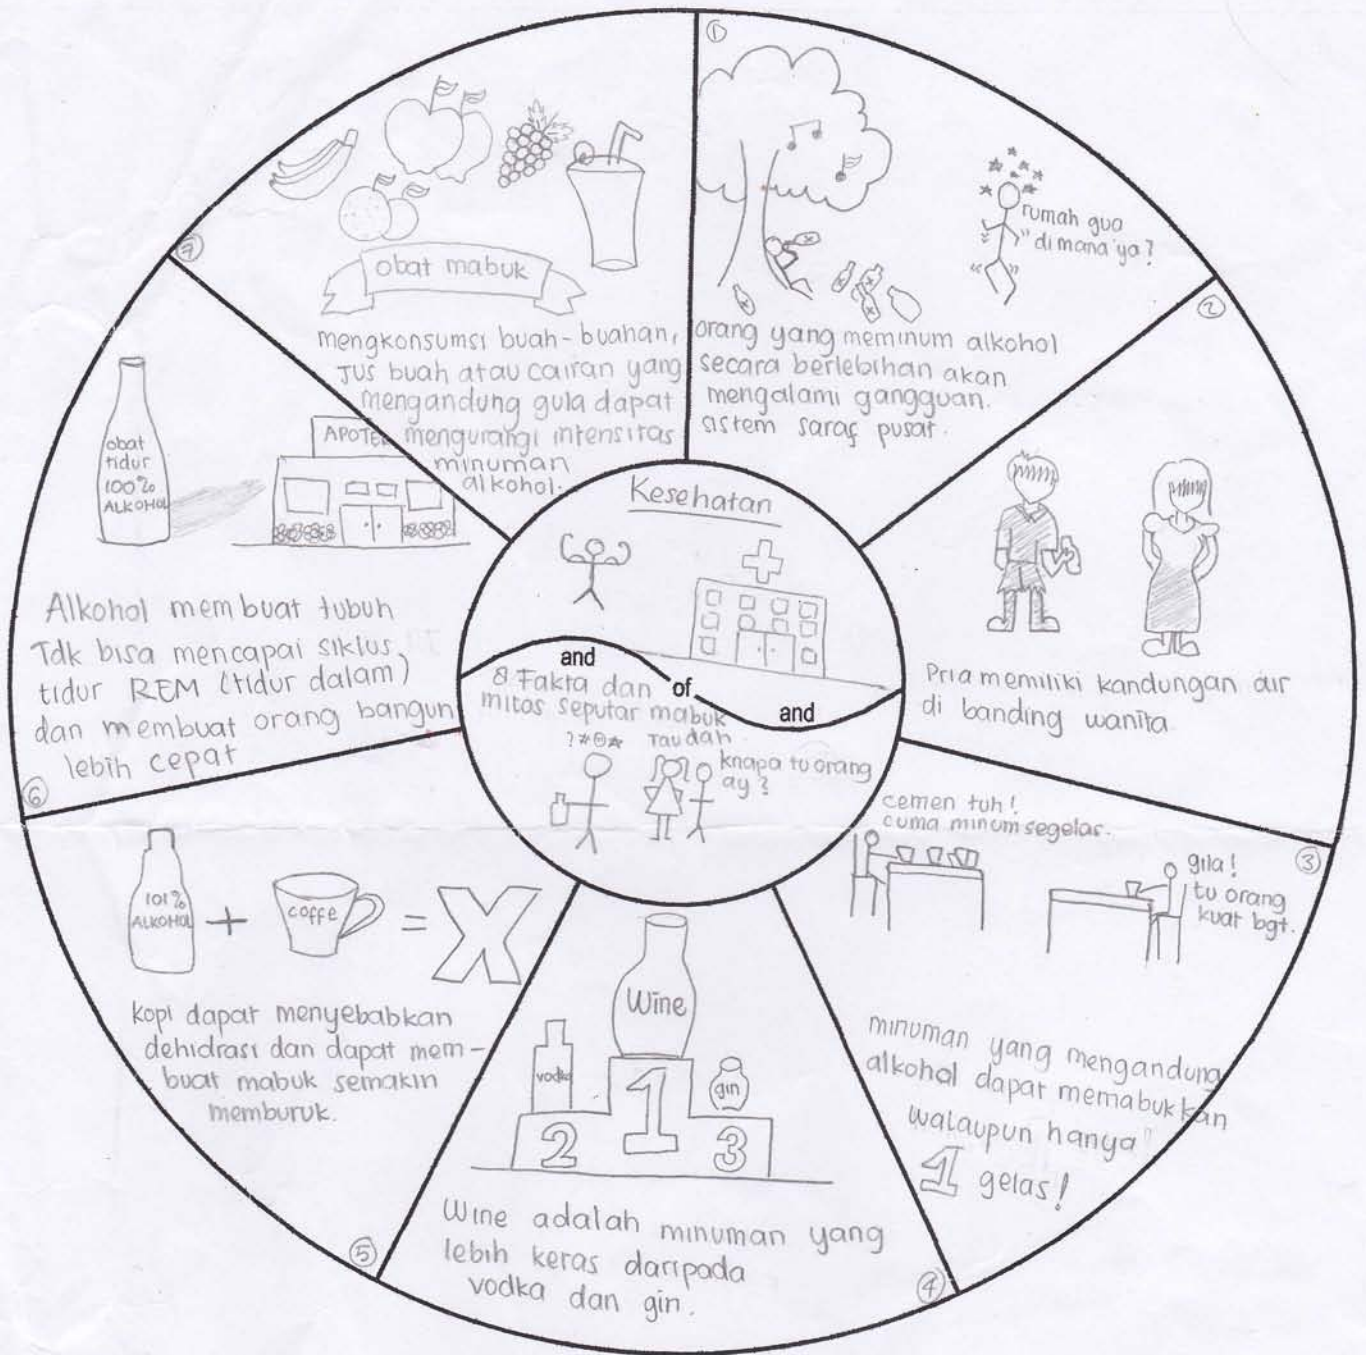 Kesehatan
and
of
and
8 Fakta dan
mitos seputar mabuk
?#☹★
Taudah
knapa tu orang
ay?
①
rumah gua
di mana ya?
orang yang meminum alkohol
secara berlebihan akan
mengalami gangguan.
sistem saraf pusat.
②
Pria memiliki kandungan air
di banding wanita.
③
cemen tuh!
cuma minum segelas.
gila!
tu orang
kuat bgt.
minuman yang mengandung
alkohol dapat memabukkan
walaupun hanya
1 gelas!
④
Wine
vodka
gin
1
2
3
Wine adalah minuman yang
lebih keras daripada
vodka dan gin.
⑤
101%
ALKOHOL
+
coffe
= X
kopi dapat menyebabkan
dehidrasi dan dapat mem-
buat mabuk semakin
memburuk.
⑥
obat
tidur
100%
ALKOHOL
APOTEK
Alkohol membuat tubuh
Tdk bisa mencapai siklus
tidur REM (tidur dalam)
dan membuat orang bangun
lebih cepat
⑦
obat mabuk
mengkonsumsi buah-buahan,
jus buah atau cairan yang
mengandung gula dapat
mengurangi intensitas
minuman
alkohol.